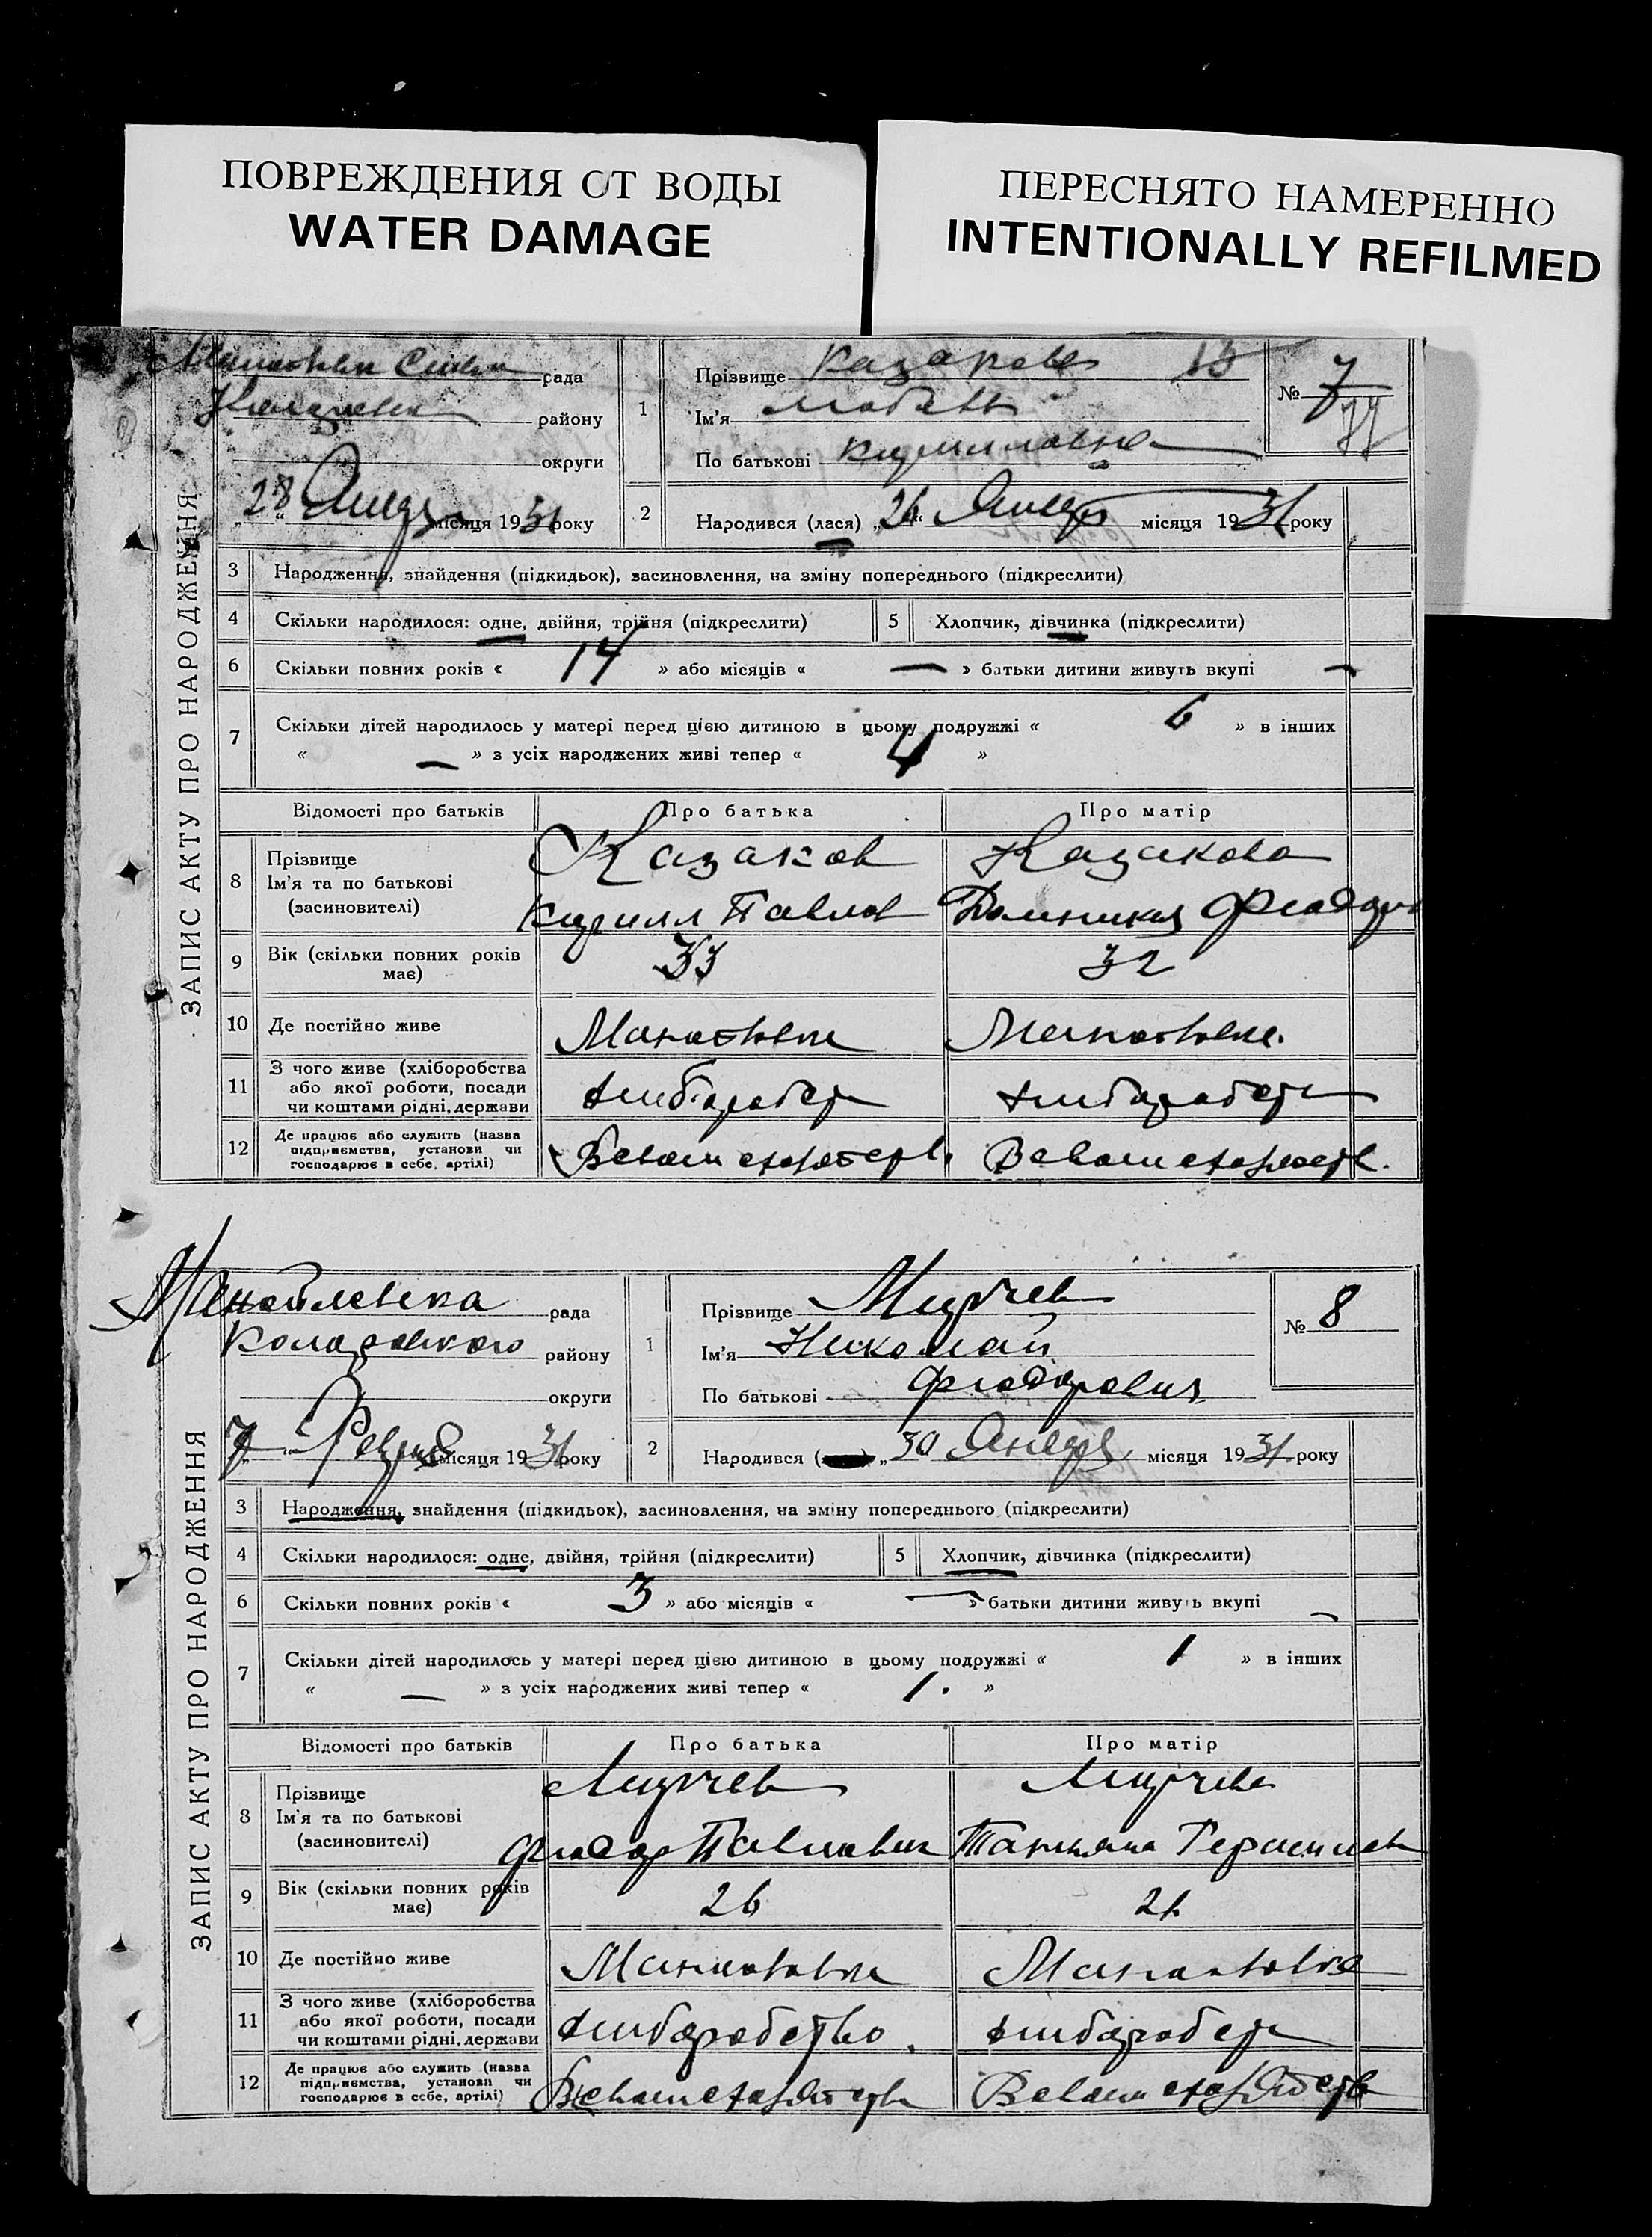 ПОВРЕЖДЕНИЯ ОТ ВОДЫ
WATER DAMAGE
ПЕРЕСНЯТО НАМЕРЕННО
INTENTIONALLY REFILMED
ЗАПИС АКТУ ПРО НАРОДЖЕННЯ
рада
району
округи
28 Январ місяця 1931 року
1
Прізвище Казакова 13
Ім'я Любовь
По батькові Кирилловна
№ 7
77
2
Народився (лася) „26“ Январ місяця 1931 року
3 Народження, знайдення (підкидьок), засиновлення, на зміну попереднього (підкреслити)
4 Скільки народилося: одне, двійня, трійня (підкреслити)
5 Хлопчик, дівчинка (підкреслити)
6 Скільки повних років « 14 » або місяців « — » батьки дитини живуть вкупі —
7 Скільки дітей народилось у матері перед цією дитиною в цьому подружжі « 6 » в інших
« — » з усіх народжених живі тепер « 4 »
Відомості про батьків Про батька Про матір
8 Прізвище
Ім'я та по батькові
(засиновителі)
Казаков
Кирилл Павлов
Казакова
Домникия Феодор
9 Вік (скільки повних років
має)
33 32
10 Де постійно живе
11 З чого живе (хліборобства
або якої роботи, посади
чи коштами рідні, держави
12 Де працює або служить (назва
підприємства, установи чи
господарює в себе, артілі)
ЗАПИС АКТУ ПРО НАРОДЖЕННЯ
Манойлевка рада
Коларовского району
округи
7 місяця 1931 року
1
Прізвище Мирчев
Ім'я Николай
По батькові Феодорович
№ 8
2
Народився „30 Январ. місяця 1931 року
3 Народження, знайдення (підкидьок), засиновлення, на зміну попереднього (підкреслити)
4 Скільки народилося: одне, двійня, трійня (підкреслити)
5 Хлопчик, дівчинка (підкреслити)
6 Скільки повних років « 3 » або місяців « — » батьки дитини живуть вкупі —
7 Скільки дітей народилось у матері перед цією дитиною в цьому подружжі « 1 » в інших
« — » з усіх народжених живі тепер « 1. »
Відомості про батьків Про батька Про матір
8 Прізвище
Ім'я та по батькові
(засиновителі)
Мирчев
Феодор Павлович
Мирчева
Татьяна Герасимов
9 Вік (скільки повних років
має)
26
10 Де постійно живе
11 З чого живе (хліборобства
або якої роботи, посади
чи коштами рідні, держави
12 Де працює або служить (назва
підприємства, установи чи
господарює в себе, артілі)